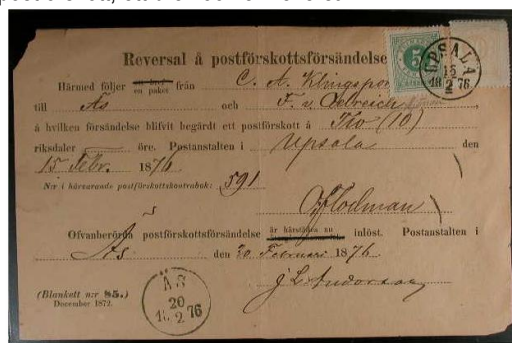 Reversal å postförskottsförsändelse
Härmed följer en paket från C. A. Klingspor
till Ås och F. v. Oelreich
å hvilken försändelse blifvit begärdt ett postförskott å Tio (10)
riksdaler öre. Postanstalten i Upsala den
15 Febr. 1876
N:r i härvarande postförskottskontrabok: 591
Flodman
Ofvanberörda postförskottsförsändelse är härstädes nu inlöst. Postanstalten i
Ås den 20 Februari 1876.
J. L. Andersson
(Blankett n:r 85.)
December 1872.
UPSALA
15
18 2 76
5
ÅS
20
18 2 76